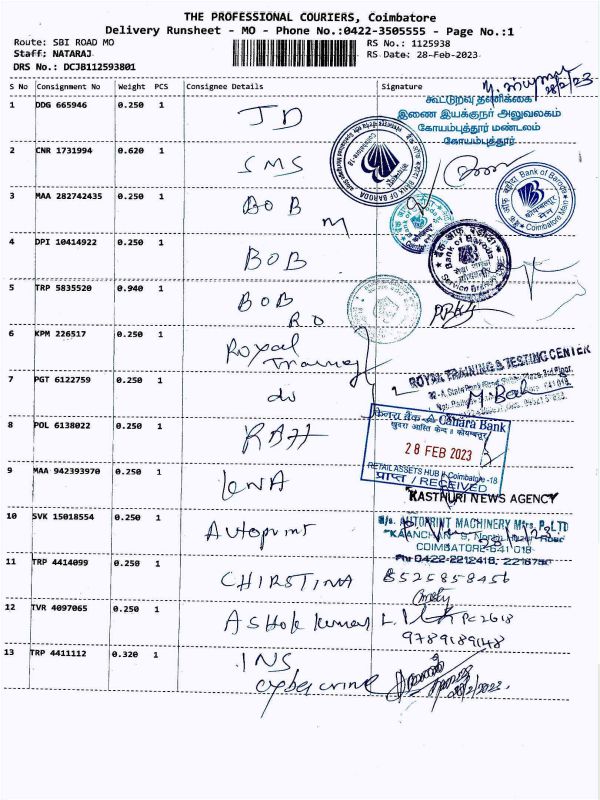 THE PROFESSIONAL COURIERS, Coimbatore
Delivery Runsheet - MO - Phone No.:0422-3505555 - Page No.:1
Route: SBI ROAD MO
RS No.: 1125938
Staff: NATARAJ
RS Date: 28-Feb-2023
DRS No.: DCJB112593801
28/2/23
S No Consignment No Weight PCS Consignee Details Signature
1 DDG 665946 0.250 1 JD
கூட்டுறவு தணிக்கை
இணை இயக்குநர் அலுவலகம்
கோயம்புத்தூர் மண்டலம்
கோயம்புத்தூர்
2 CNR 1731994 0.620 1 SMS
BANK OF BARODA
3 MAA 282742435 0.250 1 BOB M
Bank of Baroda
Coimbatore Main
4 DPI 10414922 0.250 1 BOB
Bank of Baroda
Service Branch
5 TRP 5835520 0.940 1 BOB RO
6 KPM 226517 0.250 1 Royal Training
ROYAL TRAINING & TESTING CENTER
7 PGT 6122759 0.250 1 do
8 POL 6138022 0.250 1 RAH
केनरा बैंक Canara Bank
28 FEB 2023
RETAIL ASSETS HUB Coimbatore -18
प्राप्त / RECEIVED
9 MAA 942393970 0.250 1
KASTHURI NEWS AGENCY
10 SVK 15018554 0.250 1 Autoprint
AUTOPRINT MACHINERY Mfrs. P. LTD
"KAANCHAN" 9, North Huzur Road
COIMBATORE-641 018
Ph: 0422-2212418,
11 TRP 4414099 0.250 1 CHIRSTINA 8525858456
12 TVR 4097065 0.250 1 Ashok kumar PC 2618
9789189148
13 TRP 4411112 0.320 1 INS
cybercrime
28/2/2023.